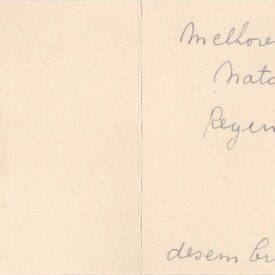 Melhore
Nata
Regen
desembr